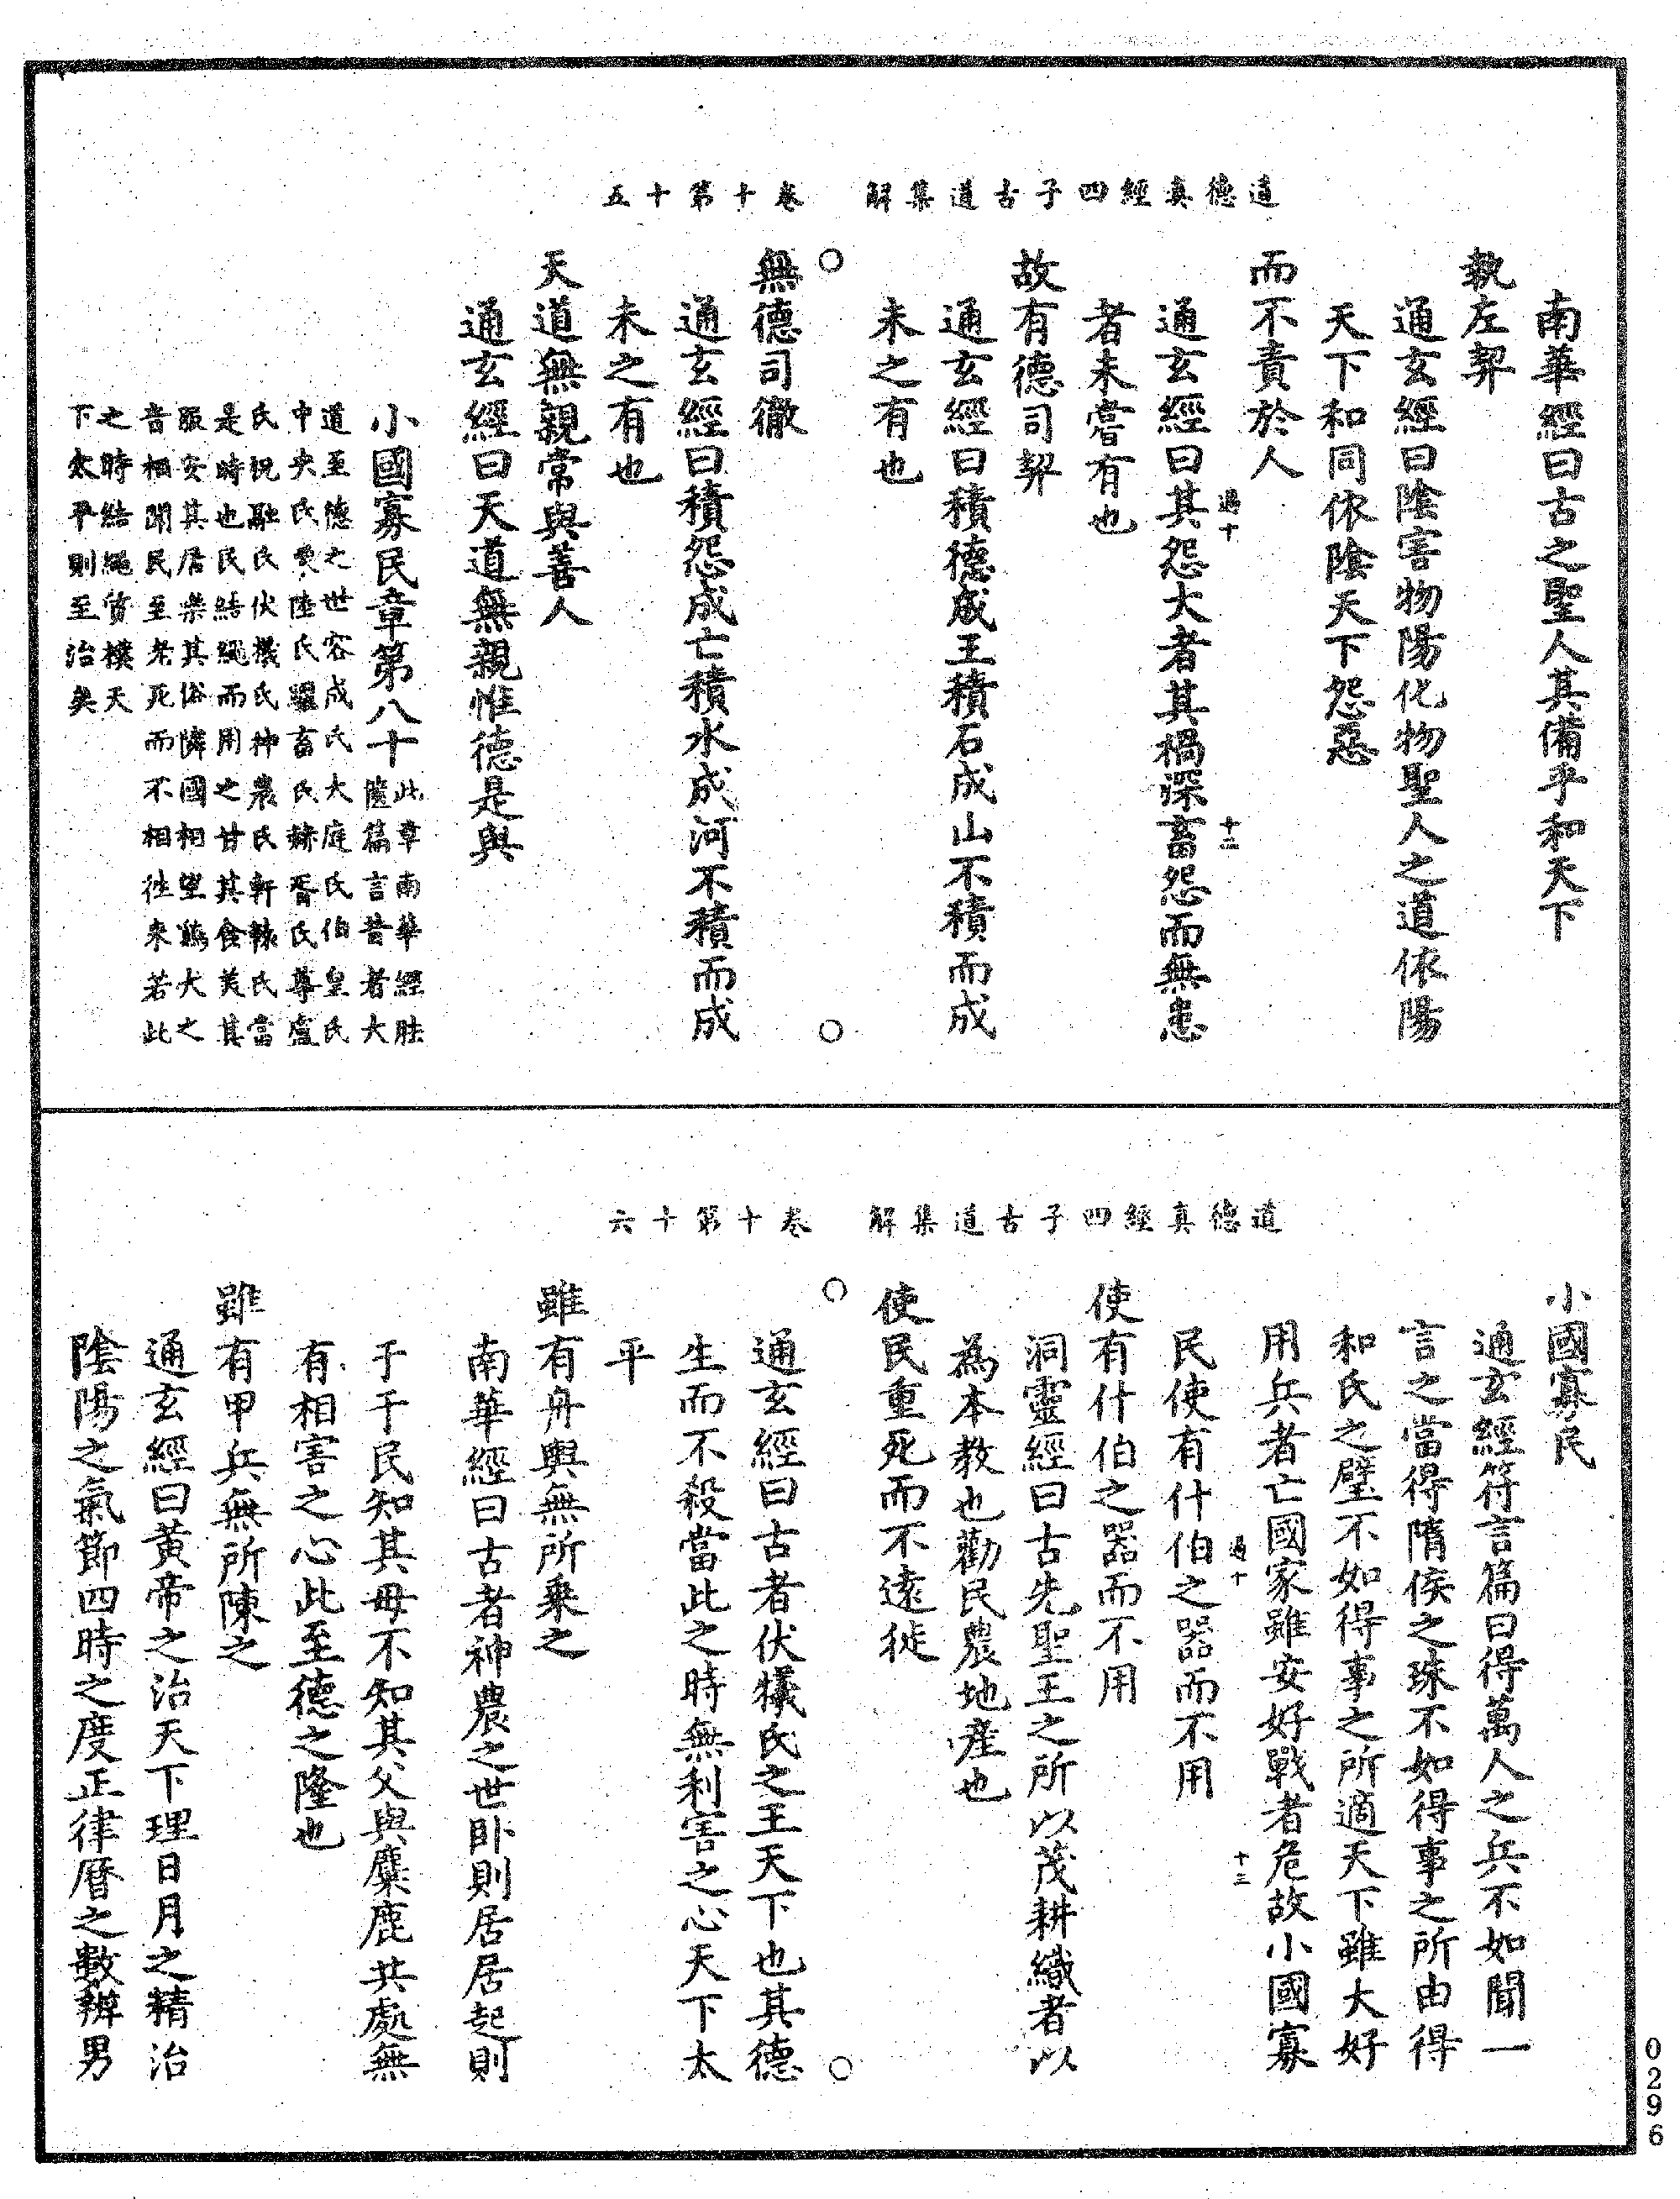 道德真經四子古道集解　卷十第十五
南華經曰古之聖人其備乎和天下
執左契
通玄經曰陰害物陽化物聖人之道依陽
天下和同依陰天下怨惡
而不責於人
過十
十二
通玄經曰其怨大者其禍深畜怨而無患
者未嘗有也
故有德司契
通玄經曰積德成王積石成山不積而成
未之有也
○
○
無德司徹
通玄經曰積怨成亡積水成河不積而成
未之有也
天道無親常與善人
通玄經曰天道無親惟德是與
小國寡民章第八十
此章南華經胠
篋篇言昔者大
道至德之世容成氏大庭氏伯皇氏
中央氏栗陸氏驪畜氏赫胥氏尊盧
氏祝融氏伏犧氏神農氏軒轅氏當
是時也民結繩而用之甘其食美其
服安其居樂其俗隣國相望鷄犬之
音相聞民至老死而不相往來若此
之時結繩質樸天
下太平則至治矣
道德真經四子古道集解　卷十第十六
小國寡民
通玄經符言篇曰得萬人之兵不如聞一
言之當得隋侯之珠不如得事之所由得
和氏之璧不如得事之所適天下雖大好
用兵者亡國家雖安好戰者危故小國寡
過十
十三
民使有什伯之器而不用
使有什伯之器而不用
洞靈經曰古先聖王之所以茂耕織者以
為本教也勸民農地產也
使民重死而不遠徙
○
○
通玄經曰古者伏犧氏之王天下也其德
生而不殺當此之時無利害之心天下太
平
雖有舟輿無所乘之
南華經曰古者神農之世卧則居居起則
于于民知其母不知其父與麋鹿共處無
有相害之心此至德之隆也
雖有甲兵無所陳之
通玄經曰黃帝之治天下理日月之精治
陰陽之氣節四時之度正律曆之數辨男
0296